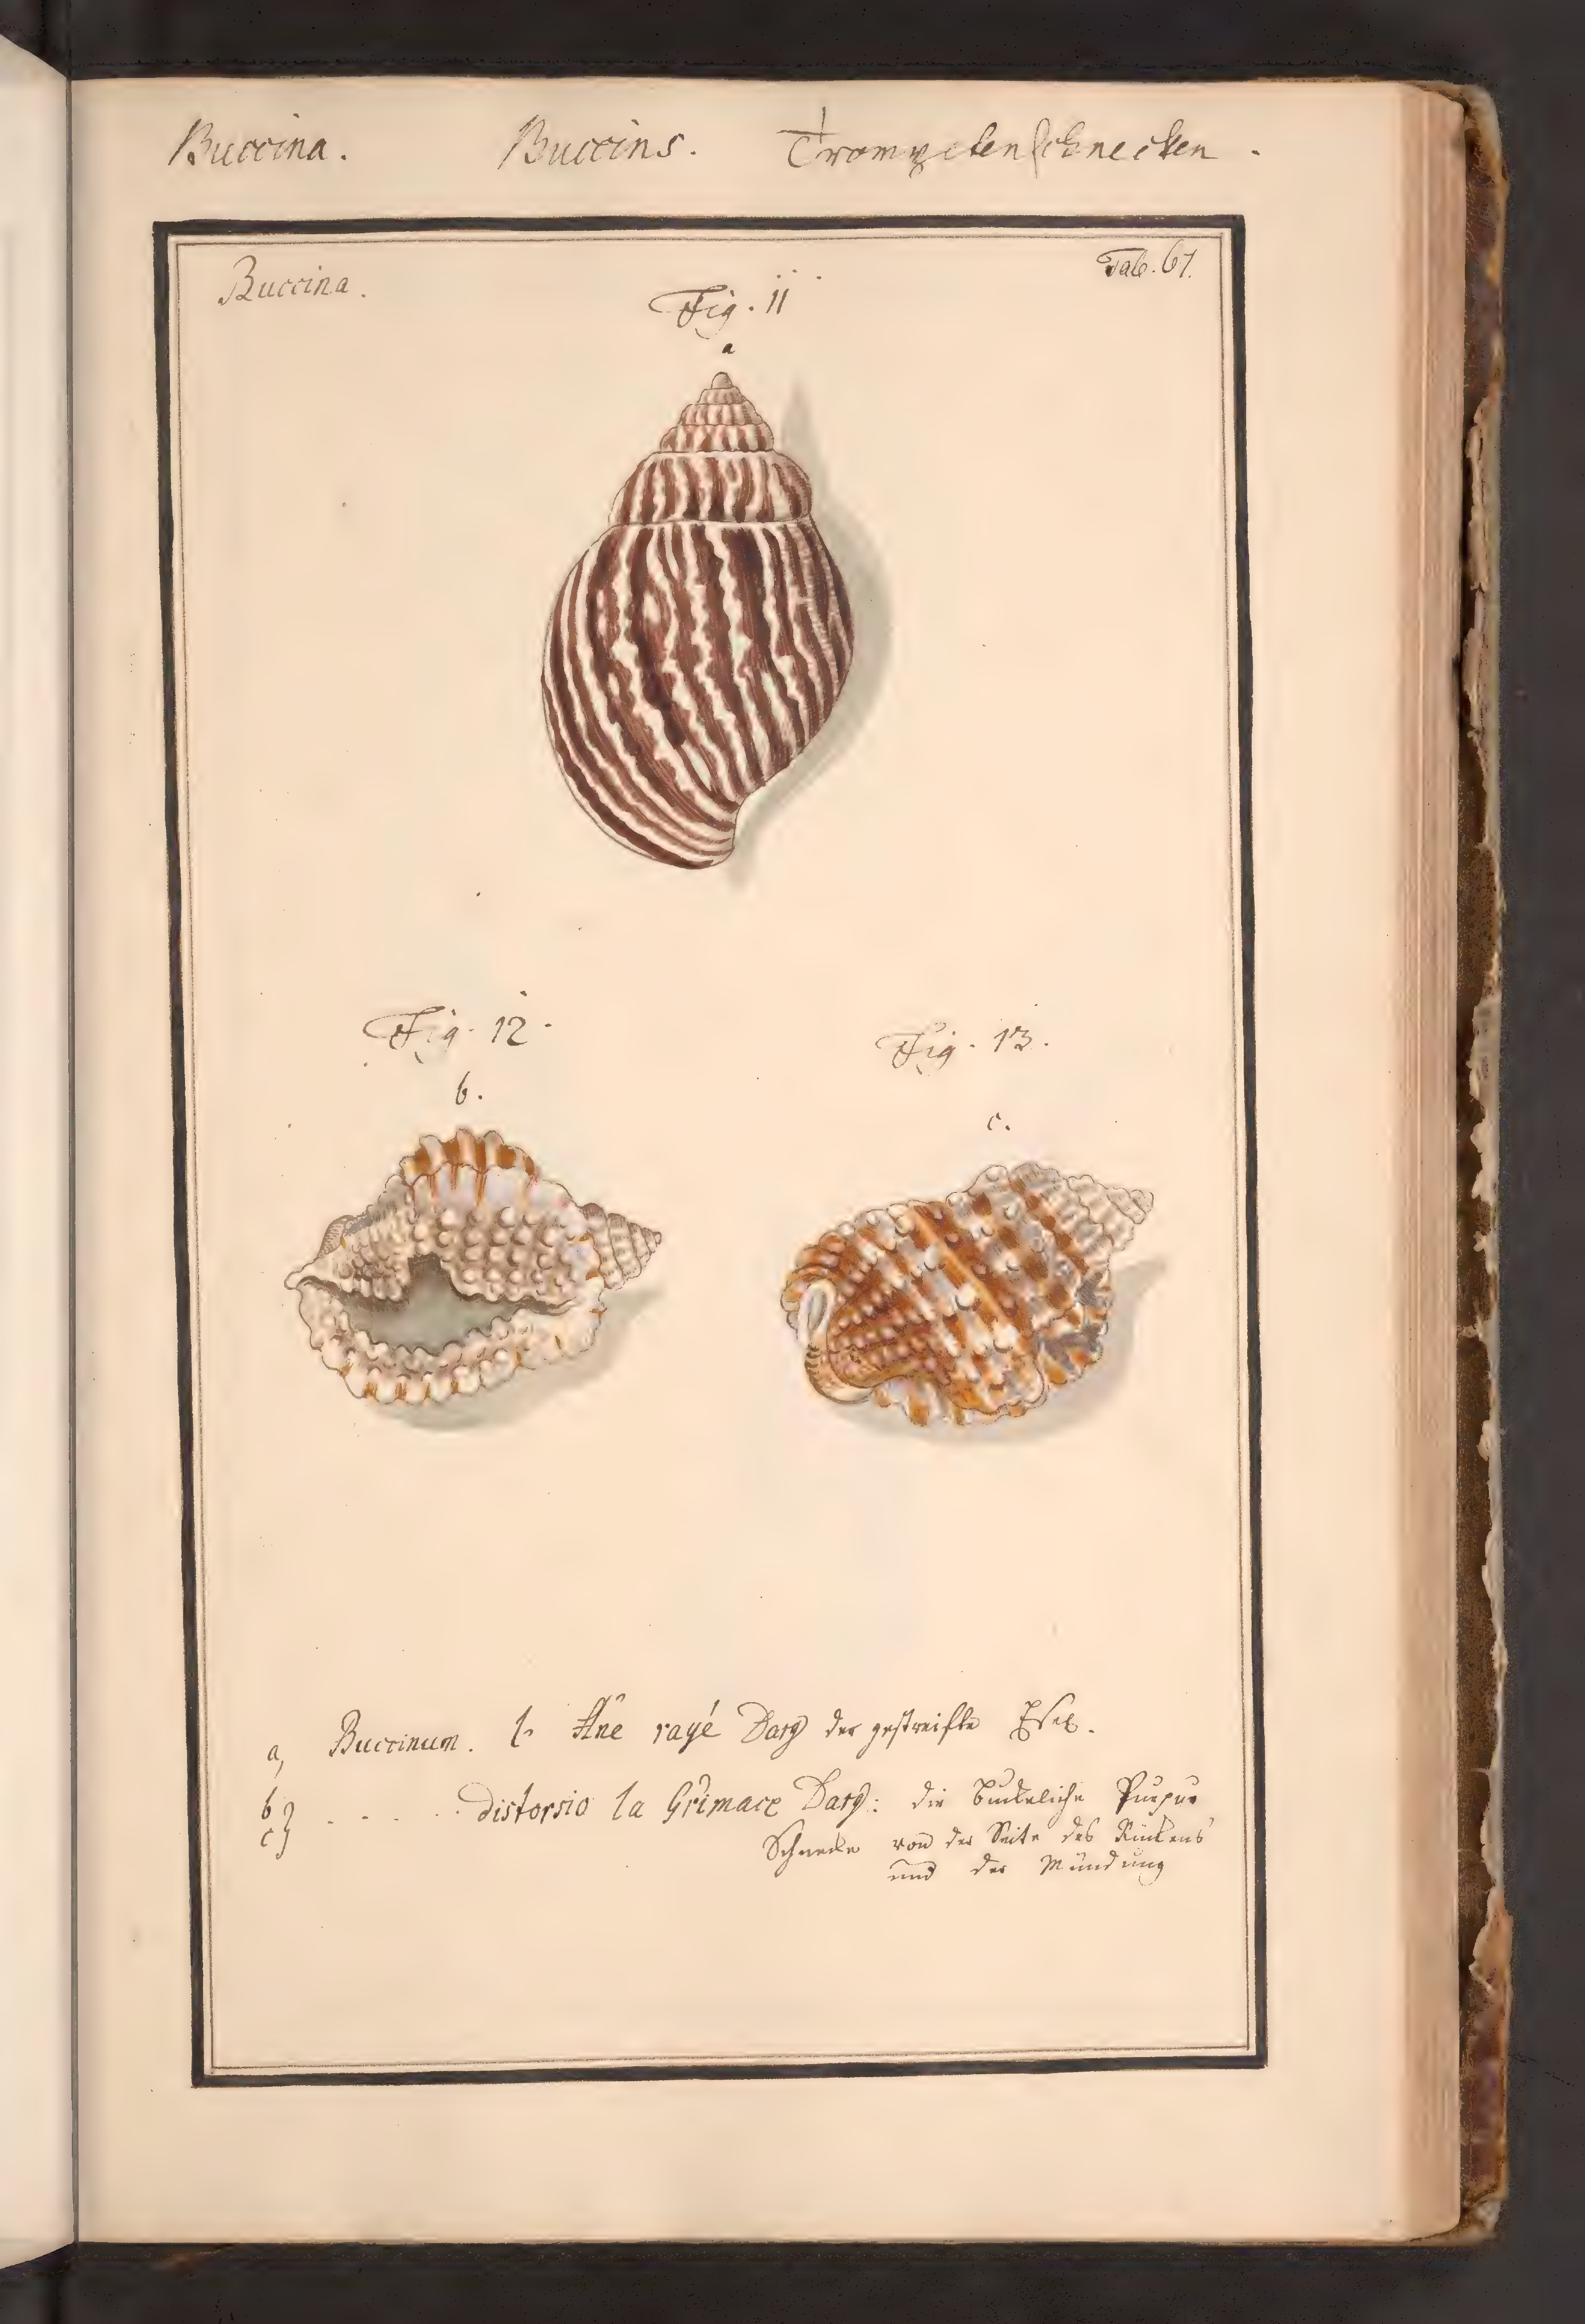 Buccina. Buccins. Trompetenschnecken.
Buccina. Tab. 67.
Fig. 11
a
Fig. 12.
b.
Fig. 13.
c.
a, Buccinum. l' Âne rayé Darg der gestreifte Esel.
b
c} - . . . distorsio la Grimace Darg: die buckeliche Purpur
Schnecke von der Seite des Rückens
und der Mündung